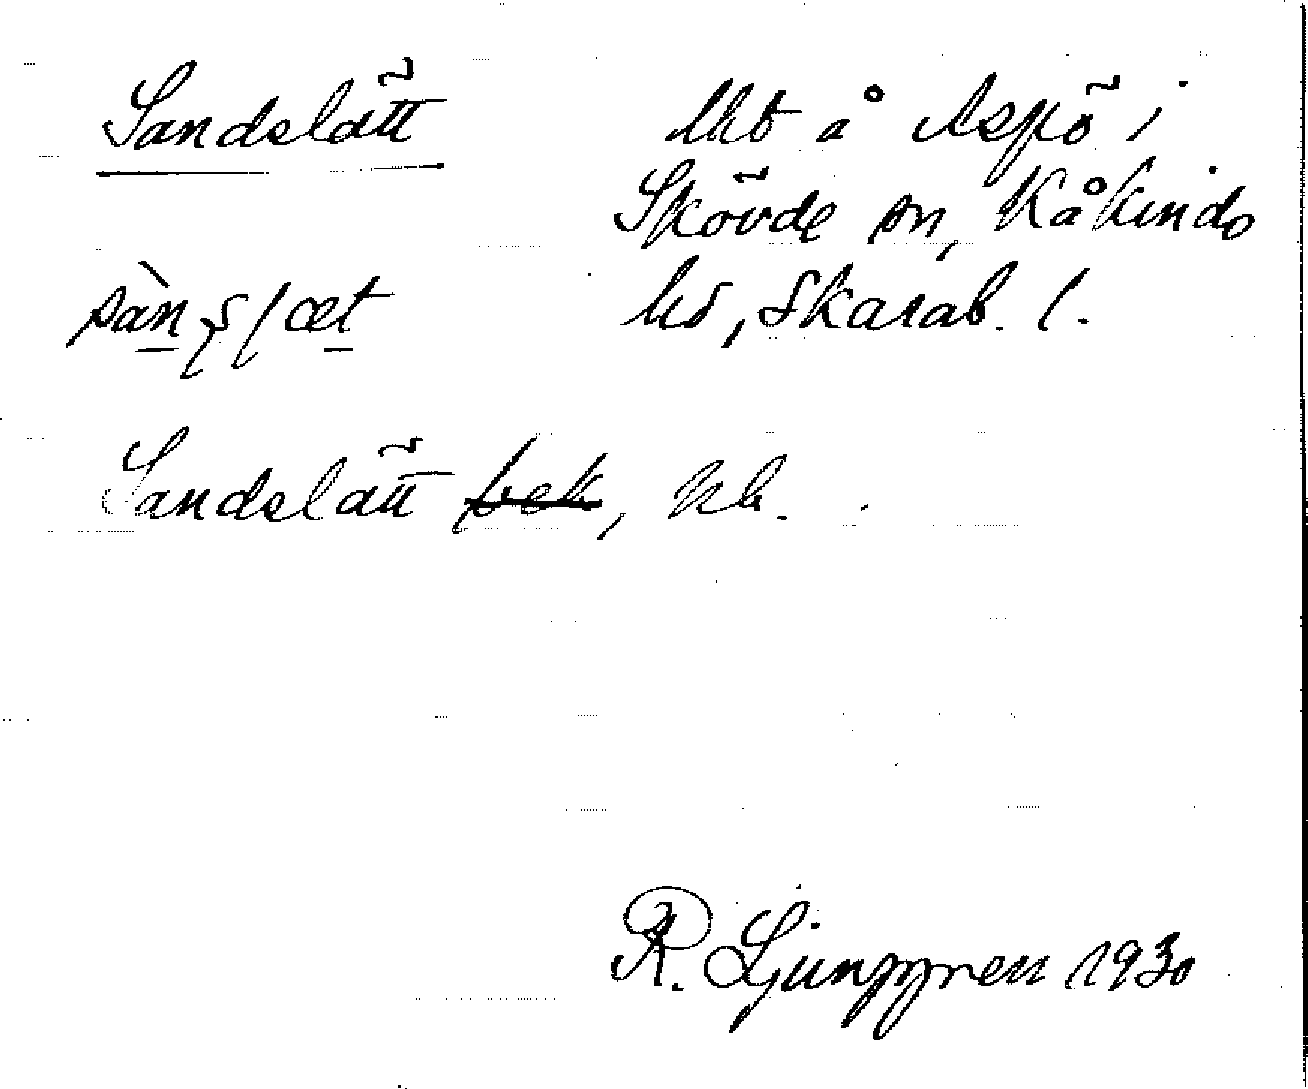 Sandslätt
Ukt å Aspö i
Skövde sn, Kåkinds
hd, Skarab. l.
Sandslätt bek, uk.
R. Ljunggren 1930